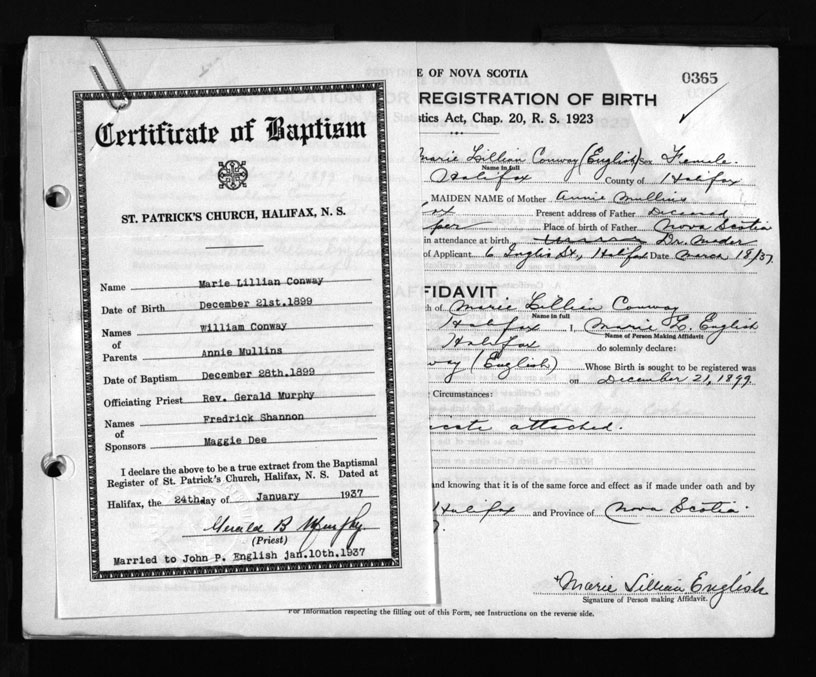 Certificate of Baptism
ST. PATRICK'S CHURCH, HALIFAX, N. S.
Name Marie Lillian Conway
Date of Birth December 21st.1899
Names William Conway
of
Parents Annie Mullins
Date of Baptism December 28th.1899
Officiating Priest Rev. Gerald Murphy
Names Fredrick Shannon
of
Sponsors Maggie Dee
I declare the above to be a true extract from the Baptismal
Register of St. Patrick's Church, Halifax, N. S. Dated at
Halifax, the 24th. day of January 1937
Gerald B Murphy.
(Priest)
Married to John P. English jan.10th.1937
E OF NOVA SCOTIA
0365
REGISTRATION OF BIRTH
stics Act, Chap. 20, R. S. 1923
Marie Lillian Conway (English) Sex Female.
Name in full
Halifax County of Halifax
MAIDEN NAME of Mother Annie Mullins
ax Present address of Father Deceased
per Place of birth of Father Nova Scotia
in attendance at birth Dr. Weder
of Applicant 6 Inglis St., Halifax Date March 18/37
FIDAVIT
th of Marie Lillian Conway
Name in full
Halifax I, Marie L. English
Name of Person Making Affidavit
Halifax do solemnly declare:
way (English) Whose Birth is sought to be registered was
on December 21, 1899.
Circumstances:
icate attached.
and knowing that it is of the same force and effect as if made under oath and by
Halifax and Province of Nova Scotia.
7.
Marie Lillian English
Signature of Person making Affidavit.
For Information respecting the filling out of this Form, see Instructions on the reverse side.